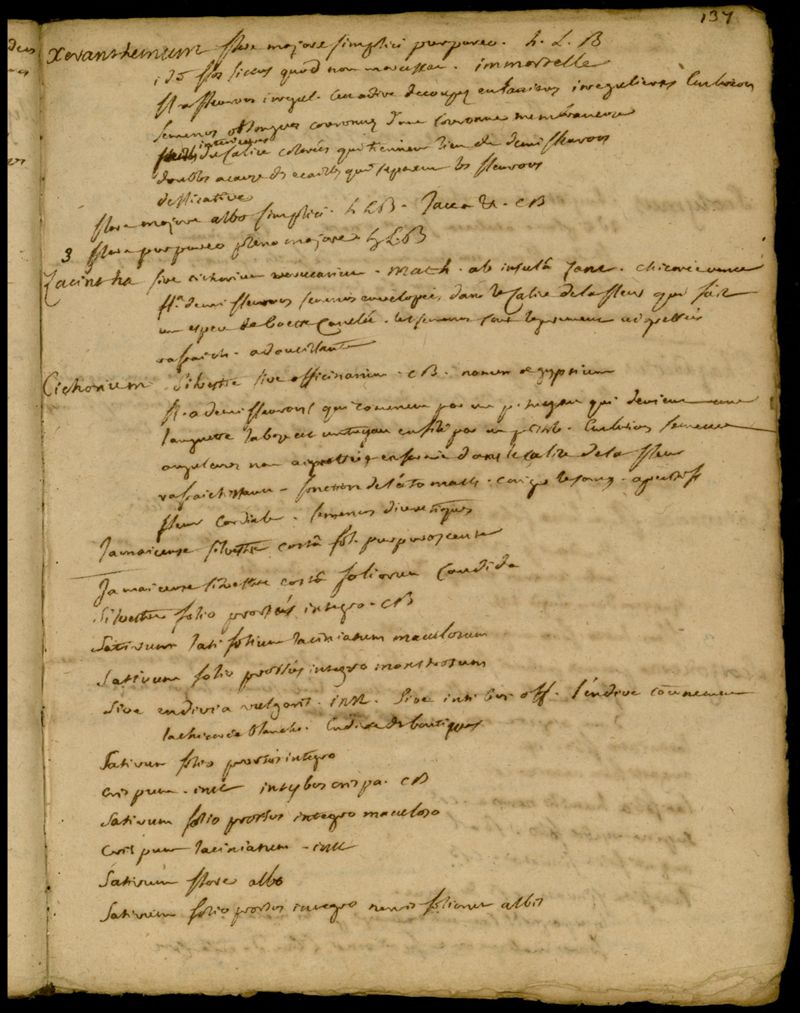 137
Xeranthemum flore majore simplici purpureo. h. L. B
id est flos siccus quod non marcessat. immortelle
fl. a fleurons irregul. decoupez en lanieres irregulieres
semences oblongues couronnez d'une couronne membraneuse
interieures
du calice colorées qui tiennent lieu de demi fleurons
doubles a cause des ecailles qui separent les fleurons
dessicative
flore majore albo simplici. h L B. Jacea &. CB
3 flore purpureo pleno majore h L B
Zacintha sive cichorium verrucarium. math. ab insula Zane. chicorée
fl. a demi fleurons semences envelopées dans le calice de la fleur qui fait
un espece de boete canelée. les semences sont aigrettées
rafraich. adoucissante
Cichorium silvestre sive officinarum. CB. nomen aegyptium
fl. a demi fleurons qui comencent par un p. tuyau qui devient une
languette la base est un tuyau enfilé par un pistile. semence
angulaires non aigrettées enfermées dans le calice de la fleur
rafraichissante. de l'estomach. corige le sang. aperitif
fleur cordiale. semences diuretiques
Jamaicense silvestre costa fol. purpurascente
Jamaicense silvestre costa foliorum candida
Silvestre folio prorsus integro. CB
Sativum latifolium laciniatum maculosum
Sativum folio prorsus integro monstrosum
Sive endivia vulgaris. inst. Sive intibus off. l'endive communement
la chicorée blanche. Endive des boutiques
Sativum folio prorsus integro
crispum. inst intybus crispa. CB
Sativum folio prorsus integro maculoso
crispum laciniatum. inst
Sativum flore albo
Sativum folio prorsus integro nervis foliorum albis